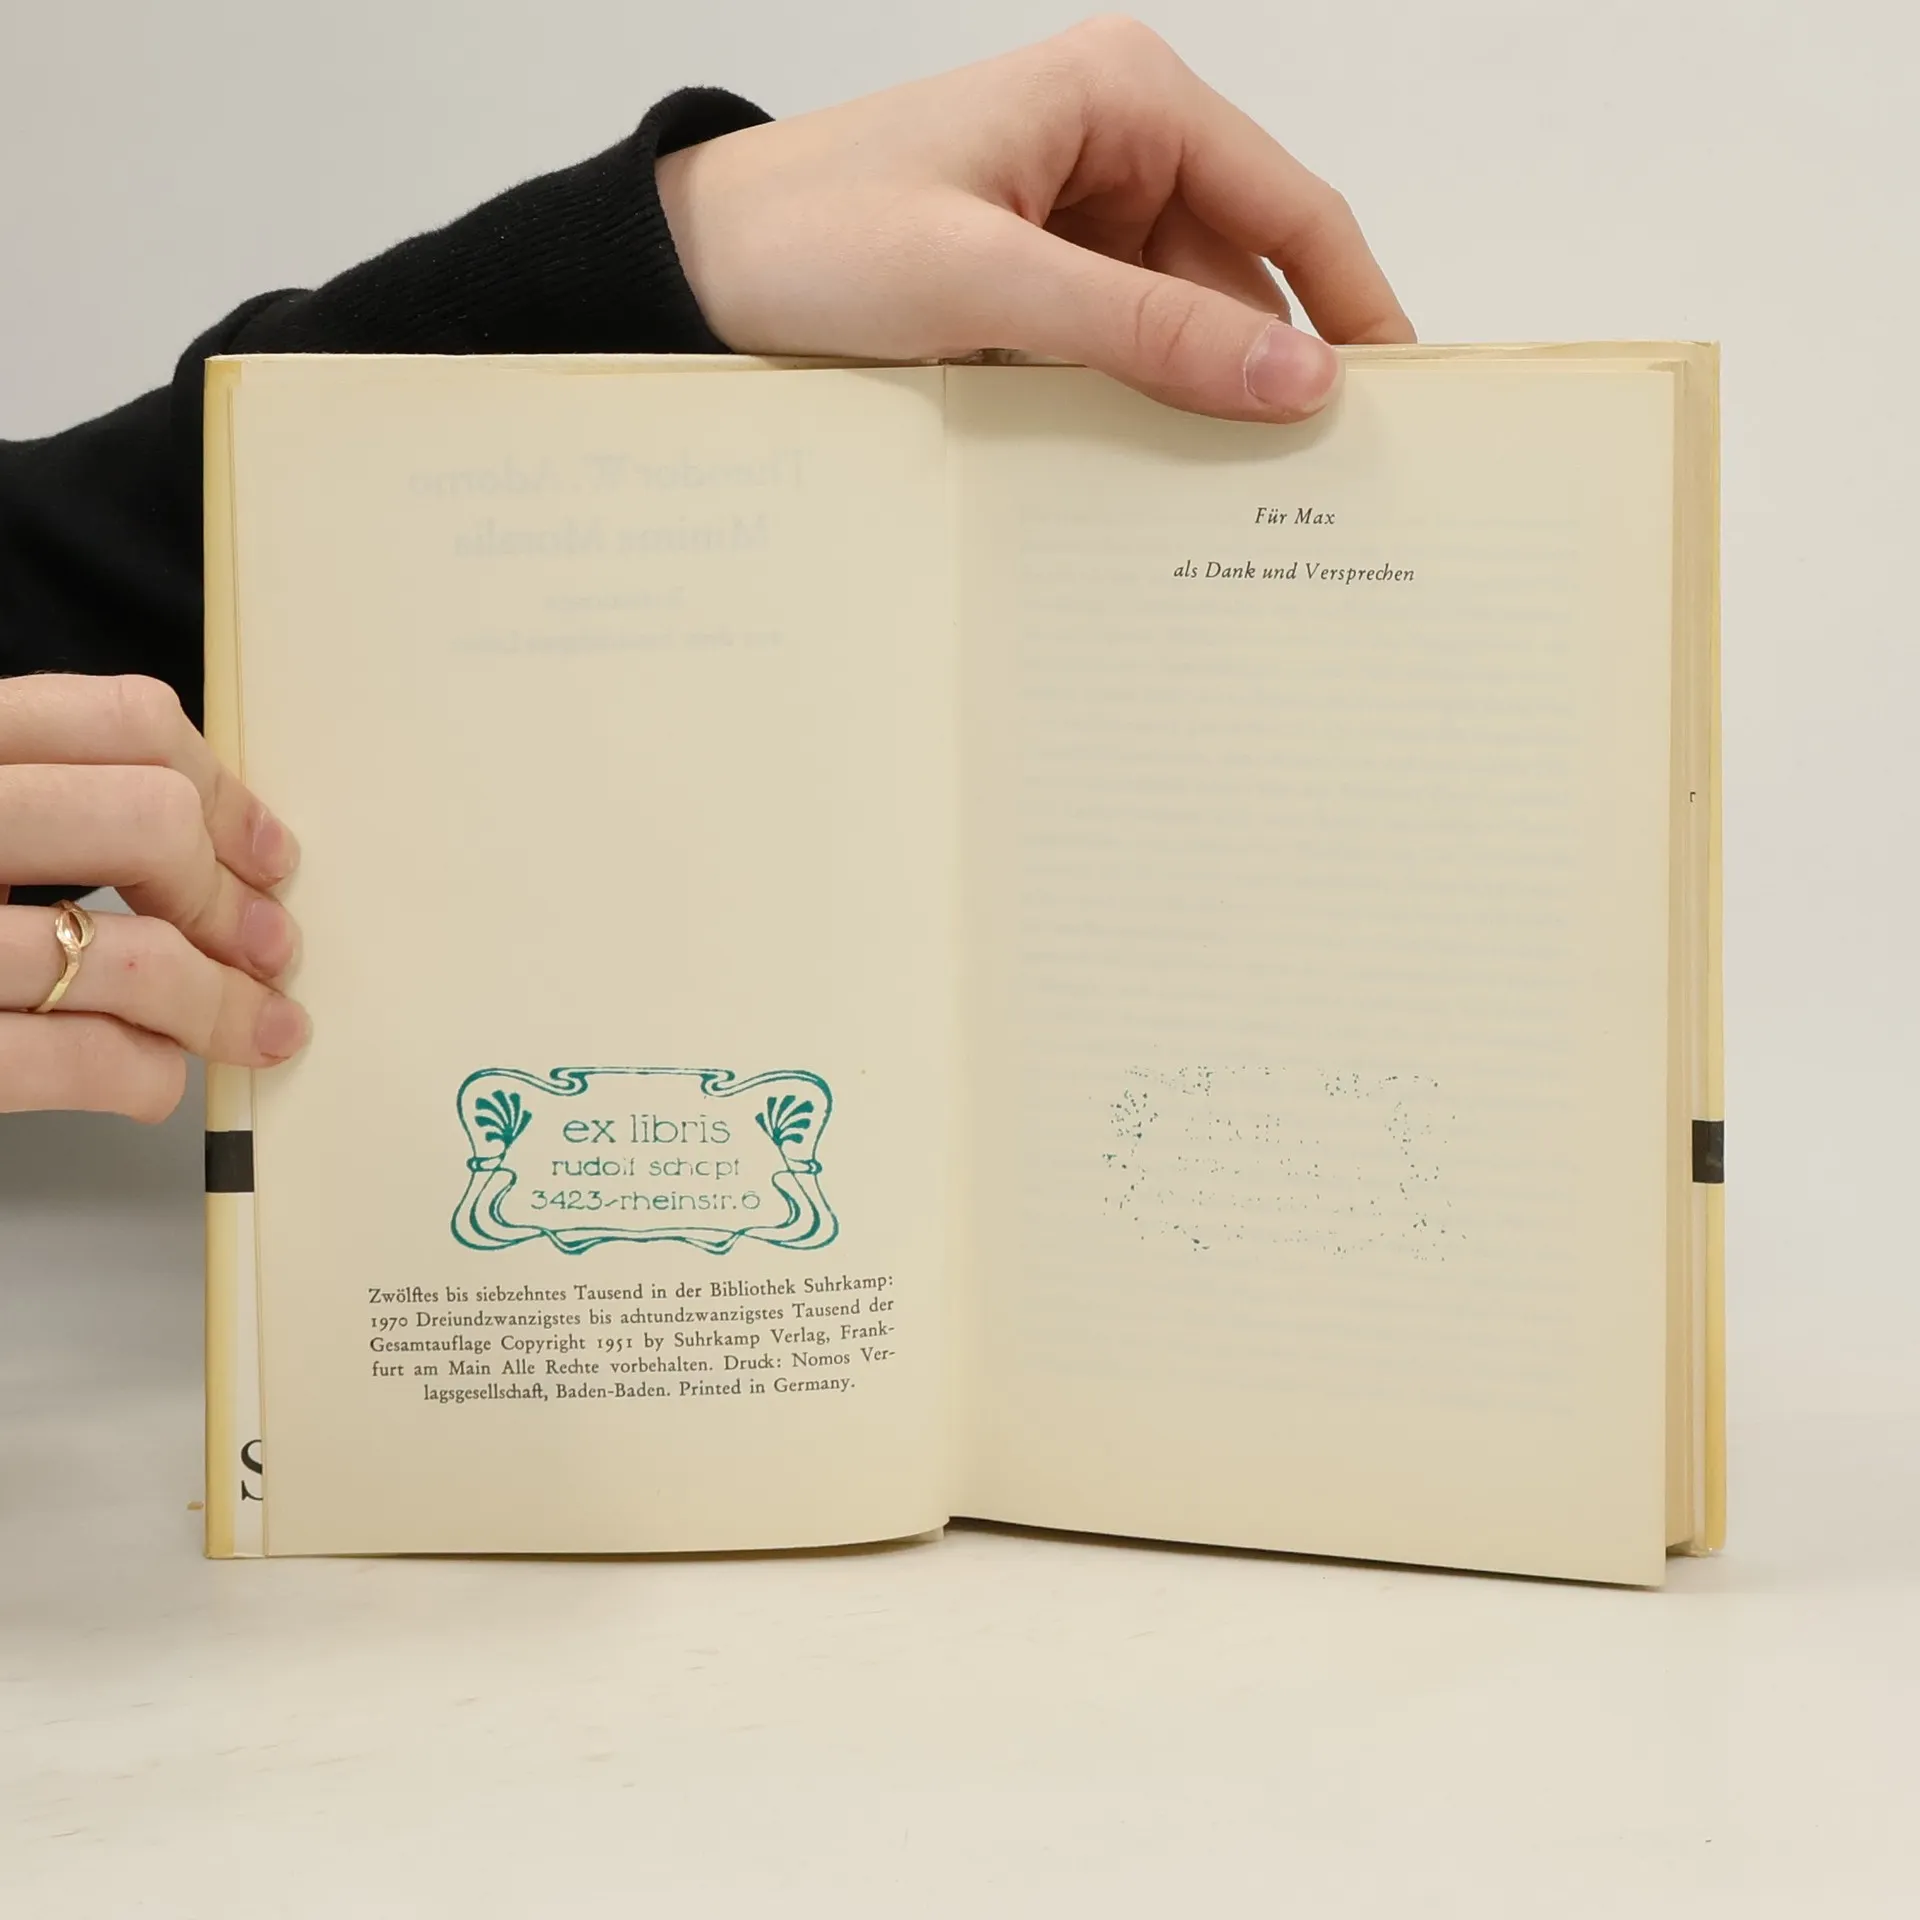 Theodor W. Adorno
Minima Moralia
ex libris
3423-rheinstr.6
Zwölftes bis siebzehntes Tausend in der Bibliothek Suhrkamp:
1970 Dreiundzwanzigstes bis achtundzwanzigstes Tausend der
Gesamtauflage Copyright 1951 by Suhrkamp Verlag, Frank-
furt am Main Alle Rechte vorbehalten. Druck: Nomos Ver-
lagsgesellschaft, Baden-Baden. Printed in Germany.
S
Für Max
als Dank und Versprechen